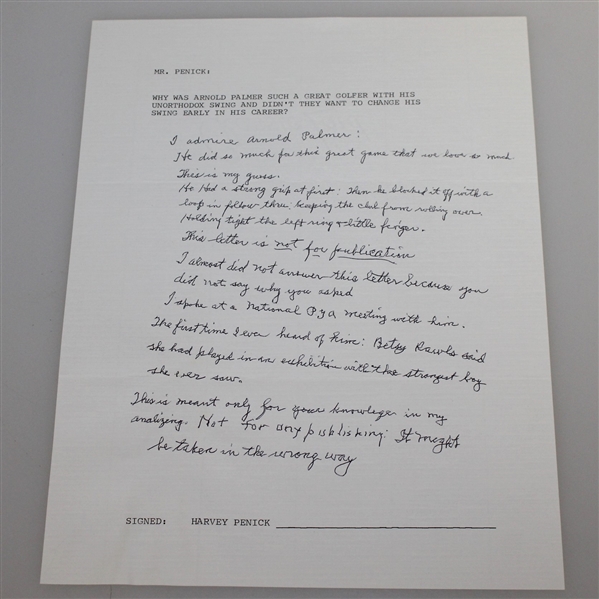 MR. PENICK:
WHY WAS ARNOLD PALMER SUCH A GREAT GOLFER WITH HIS
UNORTHODOX SWING AND DIDN'T THEY WANT TO CHANGE HIS
SWING EARLY IN HIS CAREER?
I admire Arnold Palmer:
He did so much for this great game that we love so much
This is my guess.
He Had a strong grip at first: Then he blocked it off with a
loop in follow thru: keeping the club from rolling over.
Holding tight the left ring + little finger.
This letter is not for publication
I almost did not answer this letter because you
did not say why you asked
I spoke at a National PGA meeting with him.
The first time I ever heard of him: Betsy Rawls said
she had played in an exhibition with the strongest boy
she ever saw.
This is meant only for your knowlege in my
analizing. Not for any publishing: It might
be taken in the wrong way
SIGNED: HARVEY PENICK